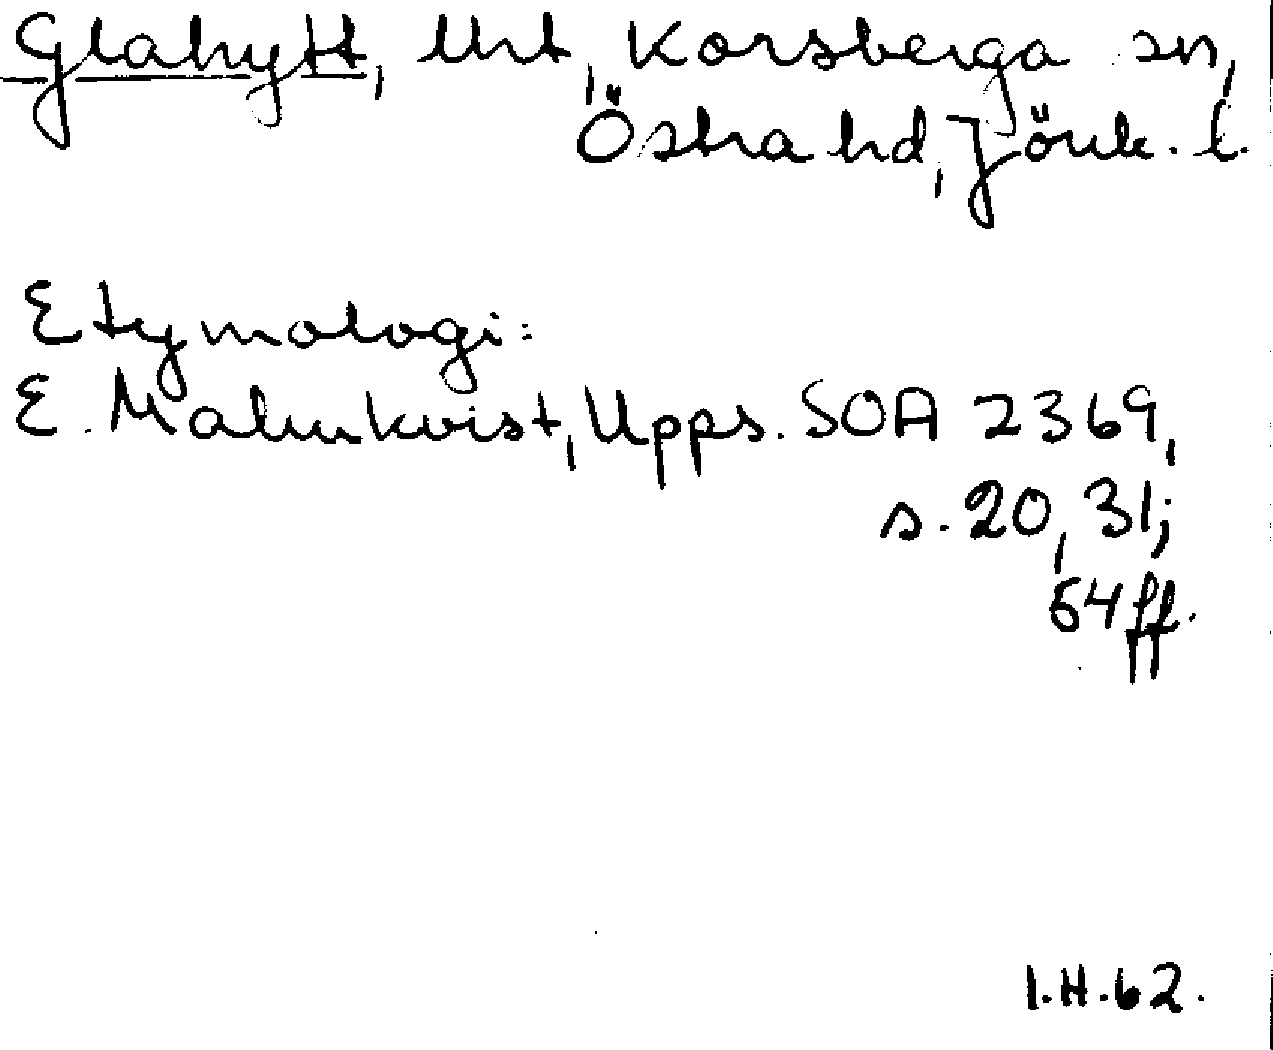 Glahytt, Urt, Korsberga sn,
Östra hd, Jönk. l.
Etymologi:
E. Malmkvist, Upps. SOA 2369,
s. 20, 31;
64 ff.
I.H.62.